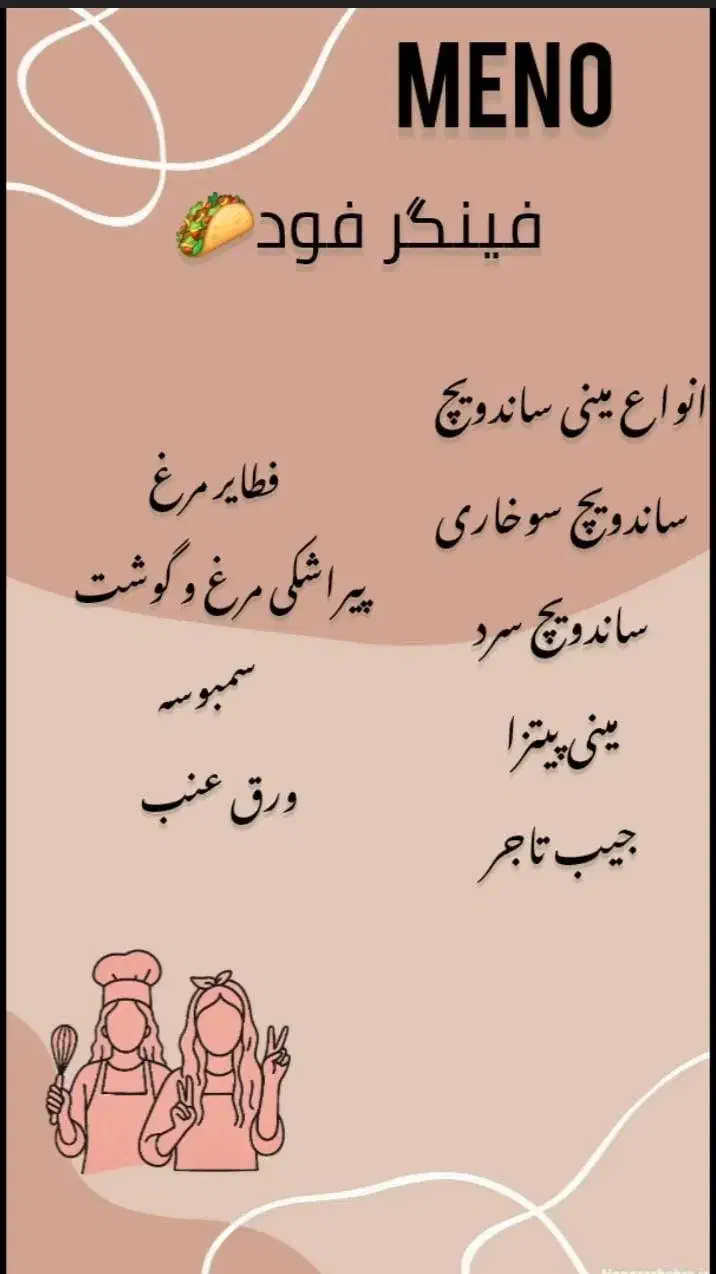 MENO
فینگر فود🌮
انواع مینی ساندویچ
ساندویچ سوخاری
ساندویچ سرد
مینی پیتزا
جیب تاجر
فطایر مرغ
پیراشکی مرغ و گوشت
سمبوسه
ورق عنب